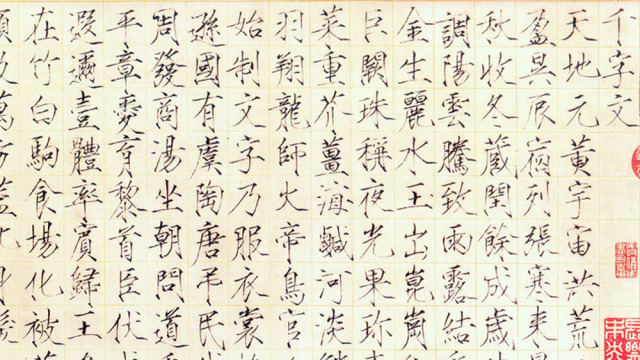 千字文
天地元黃宇宙洪荒
盈昃辰宿列張寒来
秋收冬藏閏餘成歲
調陽雲騰致雨露結
金生麗水玉出崑崗
巨闕珠稱夜光果珍
菜重芥薑海鹹河淡
羽翔龍師火帝鳥官
始制文字乃服衣裳
遜國有虞陶唐弔民
周發商湯坐朝問道
平章愛育黎首臣伏
遐邇壹體率賓歸王
在竹白駒食場化被